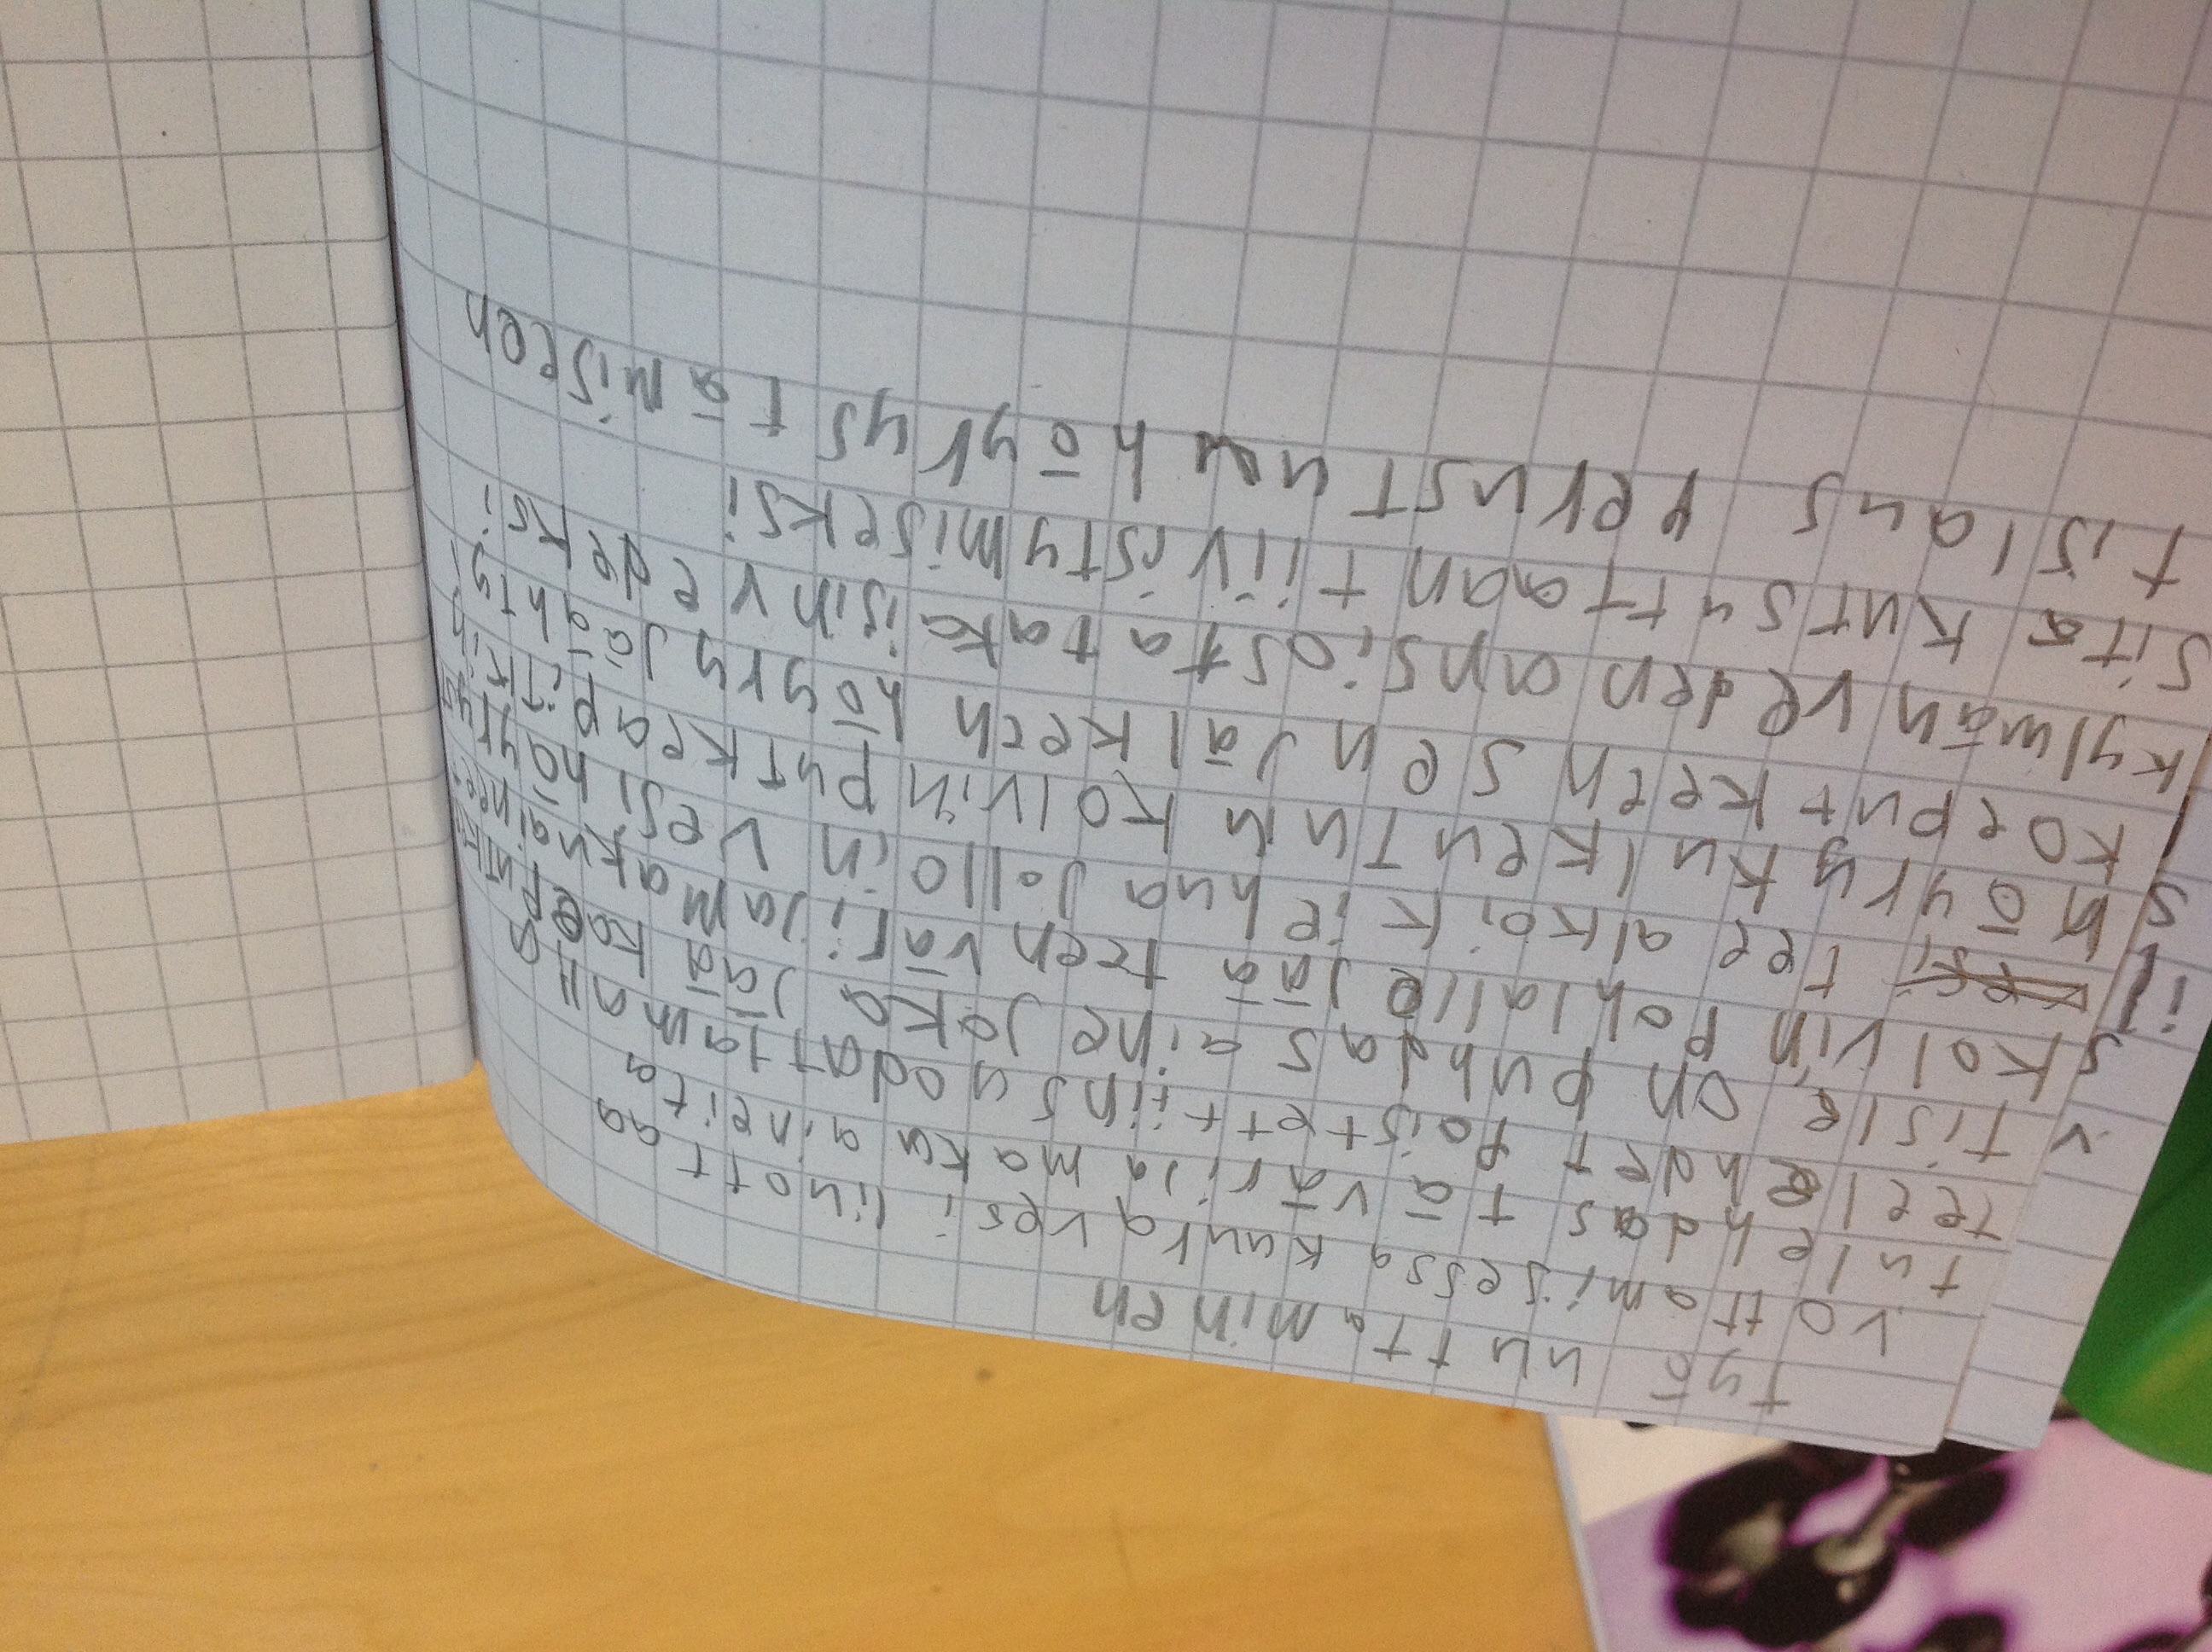 työ uuttaminen
vottamisessa kuuravesi liuottaa
tulehdas tä väri ja maku aineita
teelehdet poistettiin suodattamalla
tisle on puhdas aine joka jää koeputki
Kolvin pohjalle jää teen väri ja makuainee
tee alkoi kiehua jolloin vesi höyrys
höyry kulkeutuu kolvin putkea pitkin
koeputkeen sen jälkeen höyry jäähtyi
kylmän veden ansiosta takaisin vedeksi
sitä kutsuttaan tiivistymiseksi
tislaus perustuu höyrystämiseen